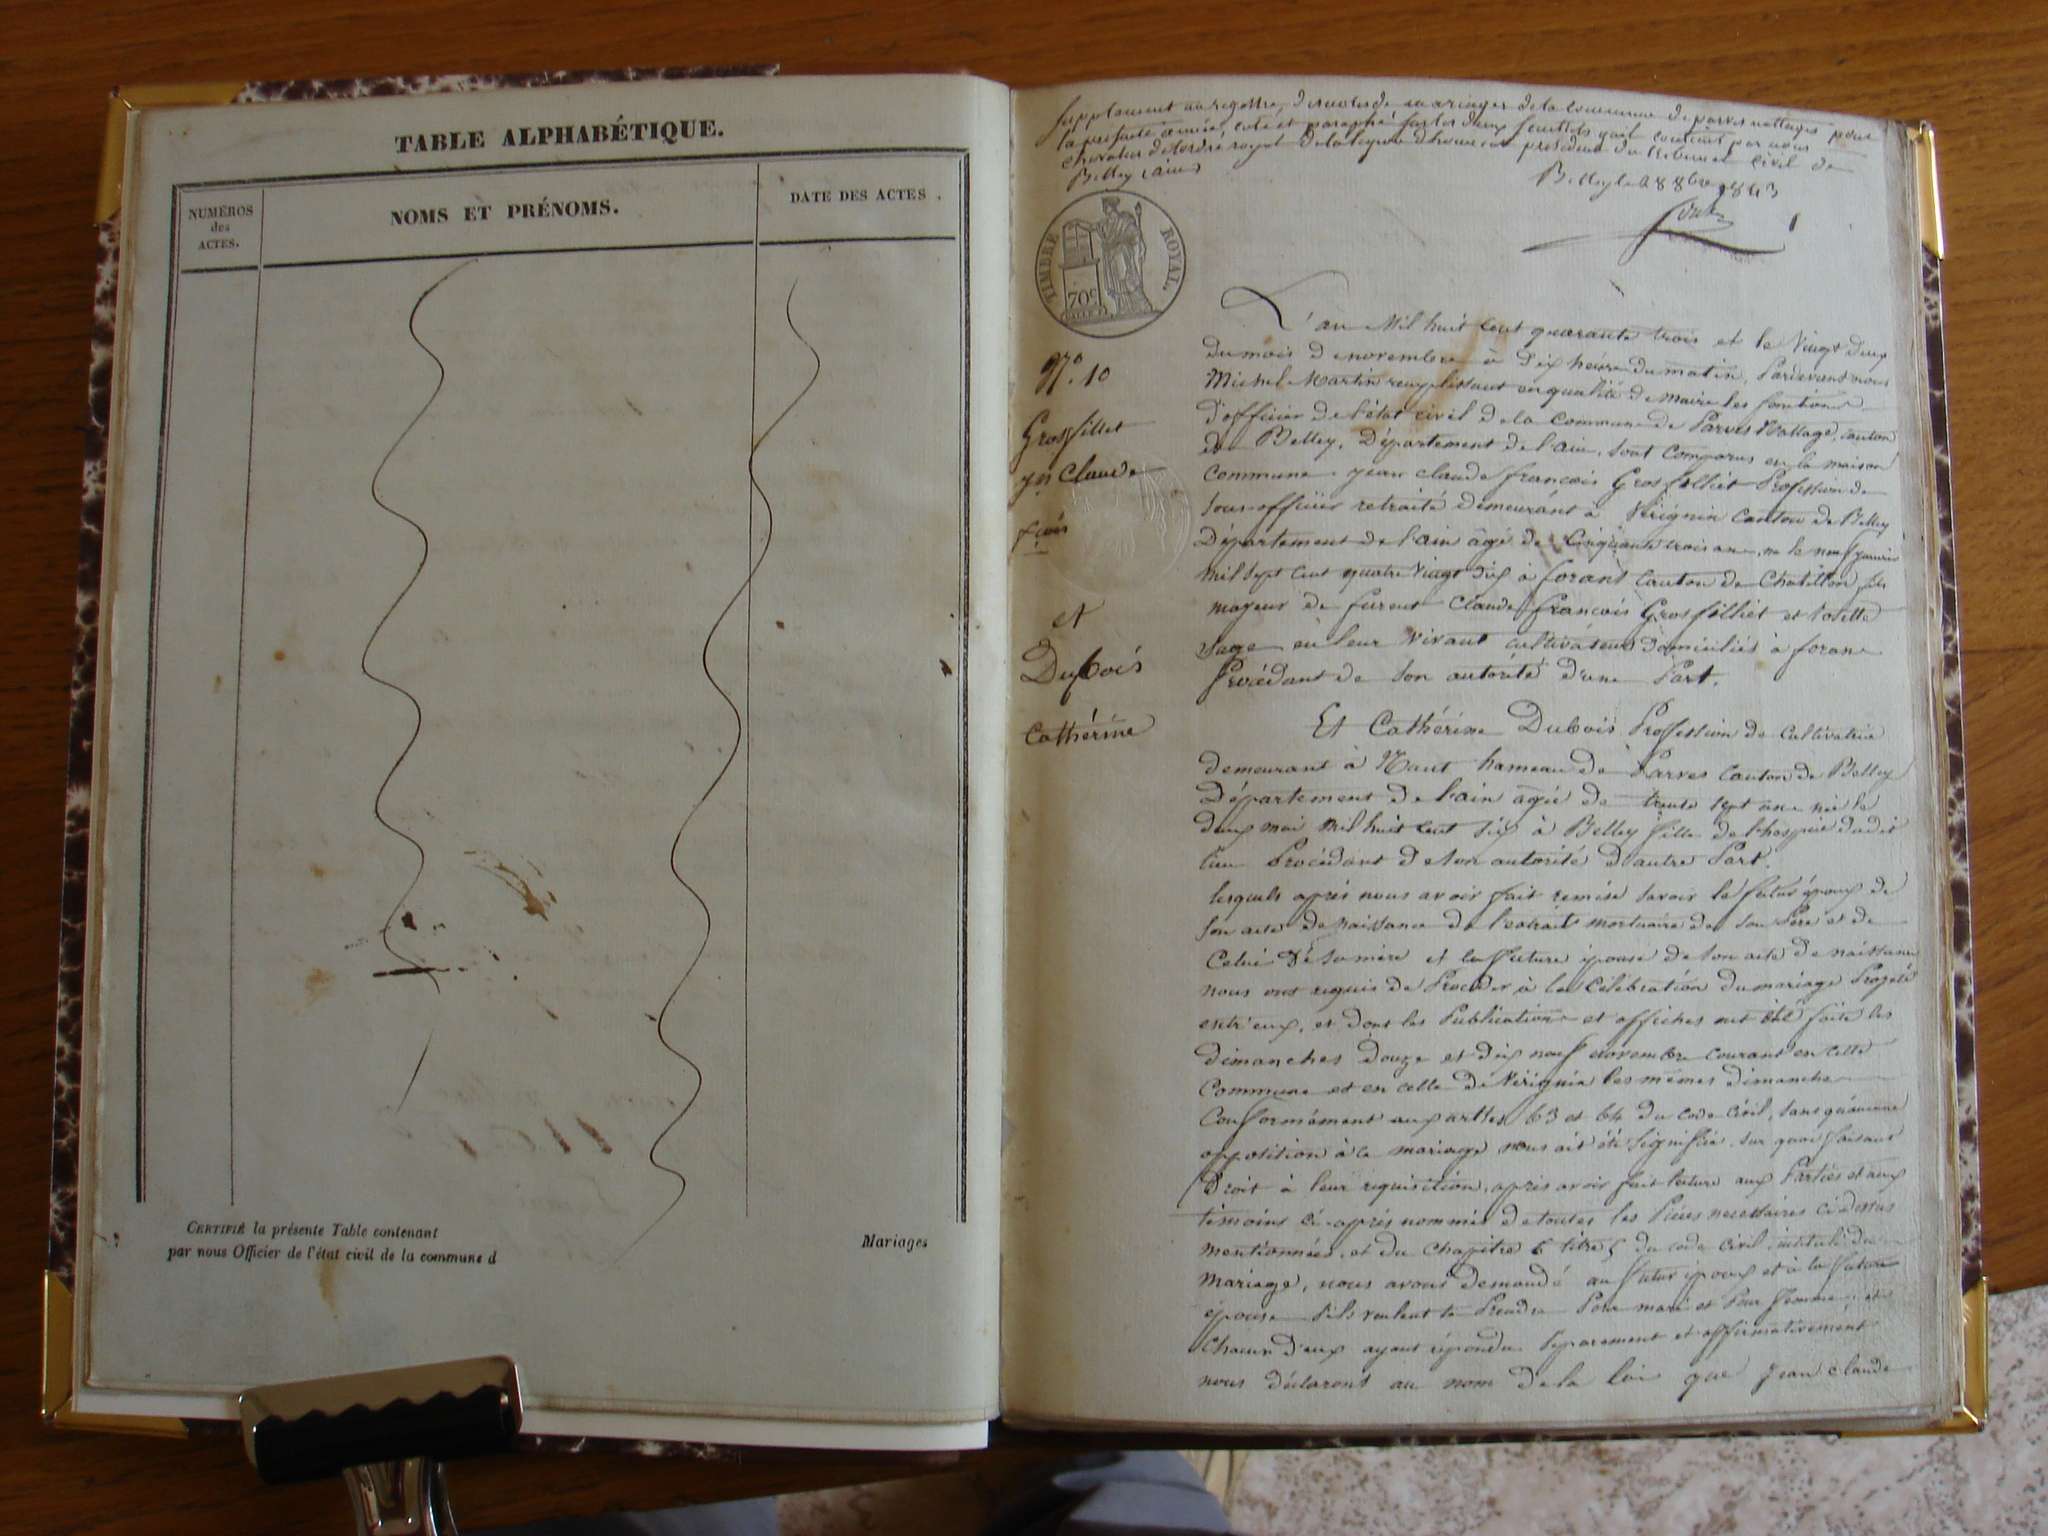 TABLE ALPHABÉTIQUE.
NUMÉROS
des
ACTES.
NOMS ET PRÉNOMS.
DATE DES ACTES.
CERTIFIÉ la présente Table contenant
par nous Officier de l'état civil de la commune d
Mariages
Supplement au registre, des actes de mariages de la commune de parves nattages pour
la presente année, coté et paraphé sur les deux feuillets qu'il contient par nous
chevalier de l'ordre royal de la legion d'honneur president du tribunal civil de
Belley (ain)
Belley le 8bre 1843
1
TIMBRE ROYAL.
70c
N.o 10
Grosfillet
jn Claude
fçois
et
Dubois
Cathérine
L'an Mil huit Cent quarante trois et le Vingt deux
du mois de novembre à Dix heure du matin, Pardevant nous
Michel Martin remplissant en qualité de Maire les fonctions
d'officier de l'état civil de la commune de Parves Nattage, canton
de Belley, Département de l'ain, sont comparus en la maison
commune jean claude francois Grosfilliet Profession de
Sous-officier retraité Demeurant à Virignin Canton de Belley
Département de l'ain âgé de Cinquante trois ans, né le neuf janvier
Mil Sept Cent quatre Vingt Dix à forans Canton de Chatillon fils
mageur de furent Claude francois Grosfilliet et Josette
Sage en leur vivant cultivateurs domiciliés à forans
Procédant de Son autorité d'une Part.
Et Cathérine Dubois Profession de Cultivatrice
demeurant à Nant hameau de Parves Canton de Belley
Département de l'ain âgée de trente sept ans née le
deux mai Mil huit Cent Six à Belley fille de l'hospice dudit
lieu Procédant de Son autorité D'autre Part.
lesquels après nous avoir fait remise Savoir le futur époux de
Son acte de Naissance de l'extrait mortuaire de Son Père et de
Celui de Sa mère et la future épouse de Son acte de naissance
nous ont requis de Procéder à la Célébration du mariage Projeté
entr'eux, et dont les Publications et affiches ont été faite les
dimanches Douze et dix neuf Novembre courant en cette
Commune et en celle de Virignin les mêmes dimanche
Conformément aux artles 63 et 64 du Code Civil, Sans qu'aucune
opposition à ce mariage nous ait été Signifiée. Sur quoi faisant
Droit à leur réquisition, après avoir fait lecture aux Parties et aux
témoins ci-après nommés de toutes les Pièces necessaires ci dessus
mentionnées, et du Chapitre 6 titre 5 du Code Civil intitulé du
Mariage, nous avons demandé au futur époux et à la future
épouse S'ils veulent Se Prendre Pour mari et Pour femme, et
Chacun D'eux ayant répondu Séparement et affirmativement
nous déclarons au nom de la loi que Jean Claude